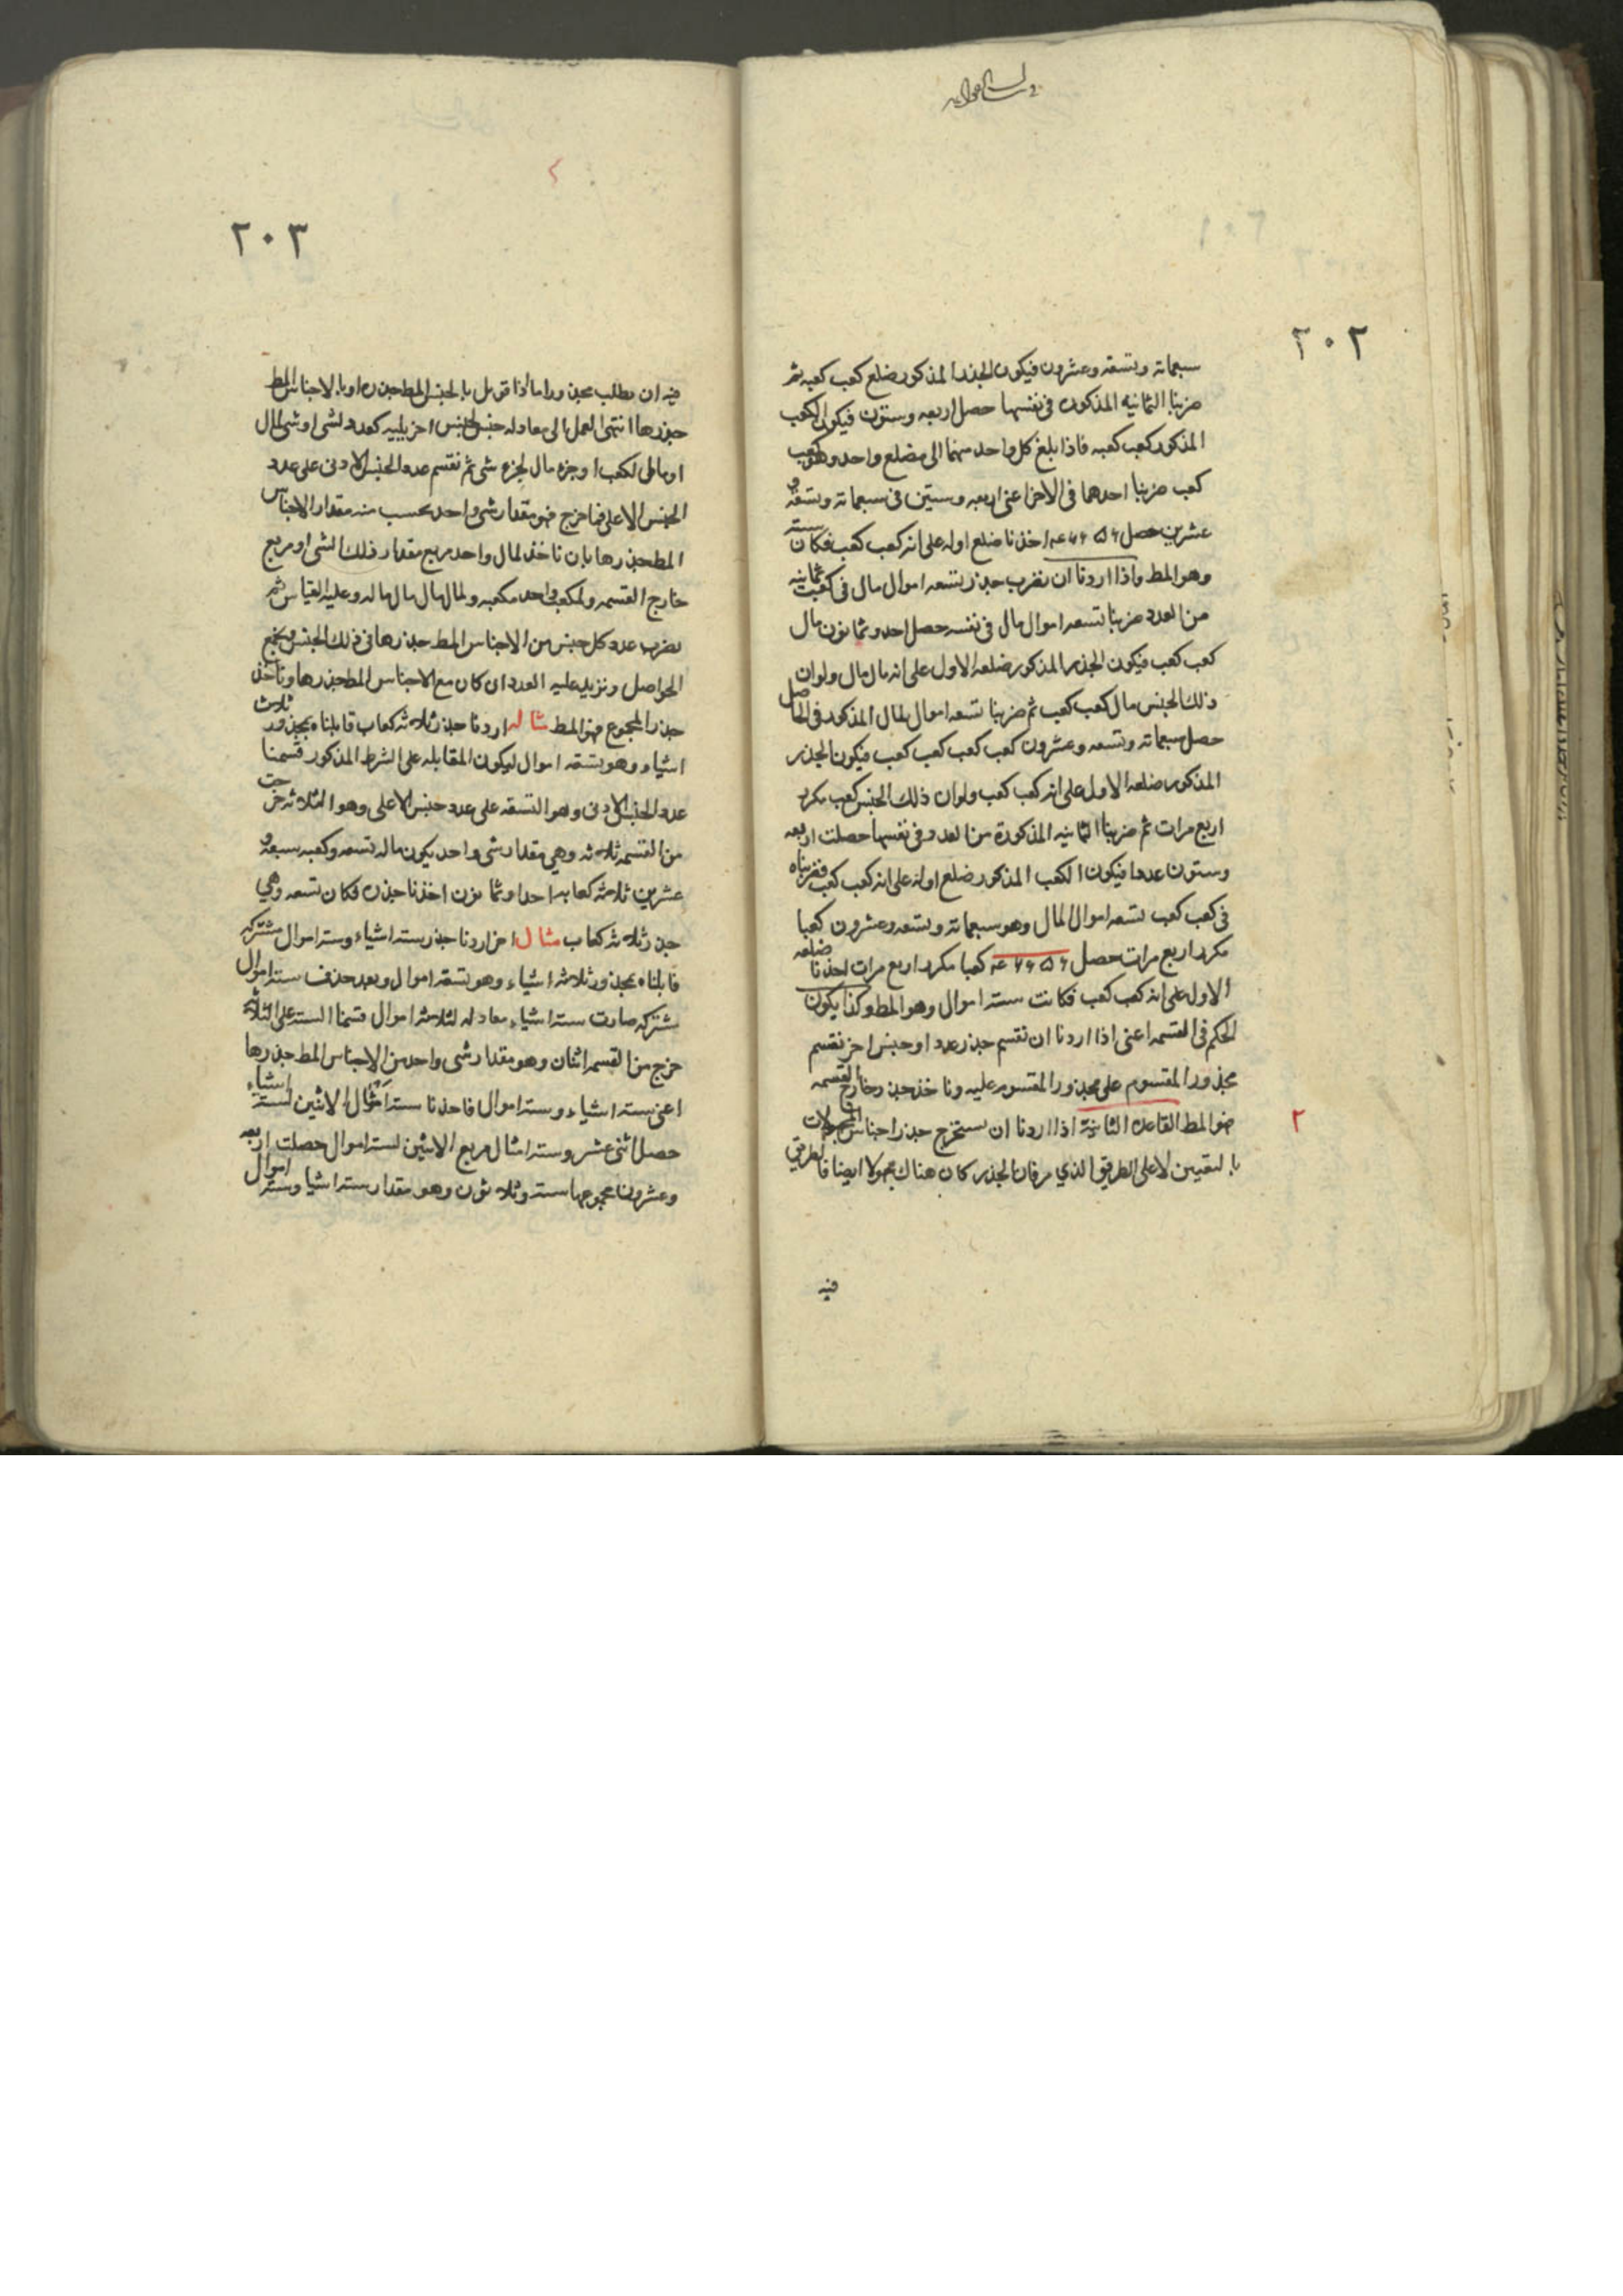 ٢٠٢
سبعمائة وتسعة وعشرون فيكون الجذر المذكور ضلع كعب كعبه ثم
ضربنا الثمانيه المذكوره فى نفسها حصل اربعه وستون فيكون الكعب
المذكور كعب كعبه فاذا بلغ كل واحد منهما الى مضلع واحد وهو كعب
كعب ضربنا احدهما فى الاخر اعنى اربعه وستين فى سبعمائة وتسعة و
عشرين حصل ۴۶۶۵۶ اخذنا ضلع اوله على انه كعب كعب فكان ستة
وهو المط واذا اردنا ان نضرب جذر تسعه اموال مال فى كعب ثمانيه
من العدد ضربنا تسعه اموال مال فى نفسه حصل احد وثمانون مال
كعب كعب فيكون الجذر المذكور ضلعه الاول على انه مال مال ولو ان
ذلك الجنس مال كعب كعب ثم ضربنا تسعه اموال المال المذكور فى الحاصل
حصل سبعمائه وتسعه وعشرون كعب كعب كعب كعب فيكون الجذر
المذكور ضلعه الاول على انه كعب كعب ولو ان ذلك الجنس كعب مكرر
اربع مرات ثم ضربنا الثمانيه المذكورة من العدد فى نفسها حصلت اربعه
وستون عددا فيكون الكعب المذكور ضلع اوله على انه كعب كعب فضربناه
فى كعب كعب تسعه اموال المال وهو سبعمائة وتسعه وعشرون كعبا
مكرر اربع مرات حصل ۴۶۶۵۶ كعبا مكرر اربع مرات اخذنا ضلعه
الاول على انه كعب كعب فكانت ستة اموال وهو المط وكذا يكون
الحكم فى القسمه اعنى اذا اردنا ان نقسم جذر عدد او جنس اخر نقسم
مجذور المقسوم على مجذور المقسوم عليه وناخذ جذر خارج القسمه
فهو المط القاعدة الثانية اذا اردنا ان نستخرج جذر اجناس المجهولات
بالتعيين لا على الطريق الذي مر فان الجذر كان هناك مجهولا ايضا فالطريق
٢
فيه
٢٠٣
فيه ان يطلب مجذورا ما اذا قوبل بالجنس المط جذره او بالاجناس المط
جذرها انتهى العمل الى معادله جنس لجنس اخر يليه كعدد لشى او شى لمال
او مال لكعب او جزء مال لجزء شى ثم نقسم عدد الجنس الادنى على عدد
الجنس الاعلى فما خرج فهو مقدار شى واحد يحسب منه مقدار الاجناس
المط جذرها بان ناخذ لمال واحد مربع مقدار ذلك الشى او مربع
خارج القسمه ولكعب واحد مكعبه ولمال مال مال ماله وعليه القياس ثم
نضرب عدد كل جنس من الاجناس المط جذرها فى ذلك الجنس ونجمع
الحواصل ونزيد عليه العدد ان كان مع الاجناس المط جذرها وناخذ
جذر المجموع فهو المط مثاله اردنا جذر ثلاثه كعاب قابلناه بمجذور ثلاث
اشياء وهو تسعه اموال ليكون المقابله على الشرط المذكور قسمنا
عدد الجنس الادنى وهو التسعه على عدد جنس الاعلى وهو الثلاثه خرجت
من القسمه ثلاثه وهى مقدار شى واحد يكون ماله تسعه وكعبه سبعه و
عشرين ثلاثه كعابه احدا وثمانون اخذنا جذره فكان تسعه وهي
جذر ثلاثه كعاب مثال اخر اردنا جذر سته اشياء وسته اموال مشتركه
قابلناه بمجذور ثلاثه اشياء وهو تسعه اموال وبعد حذف سته اموال
مشتركه صارت سته اشياء معادله لثلاثه اموال قسمنا السته على الثلاثه
خرج من القسمه اثنان وهو مقدار شى واحد من الاجناس المط جذرها
اعنى سته اشياء وسته اموال فاخذنا سته امثال الاثنين لسته اشياء
حصل اثنى عشر وسته امثال مربع الاثنين لسته اموال حصلت اربعه
وعشرون مجموعها ستة وثلاثون وهو مقدار سته اشيا وسته اموال